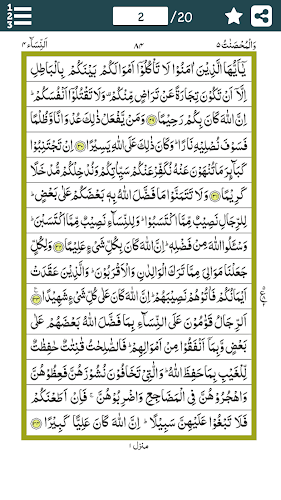 1
2
3
2 /20
وَالْمُحْصَنٰتُ ٥ ٨٤ اَلنِّسَآء ٤
يٰۤاَيُّهَا الَّذِيْنَ اٰمَنُوْا لَا تَاْكُلُوْۤا اَمْوَالَكُمْ بَيْنَكُمْ بِالْبَاطِلِ
اِلَّاۤ اَنْ تَكُوْنَ تِجَارَةً عَنْ تَرَاضٍ مِّنْكُمْ ۫ وَلَا تَقْتُلُوْۤا اَنْفُسَكُمْ ؕ
اِنَّ اللّٰهَ كَانَ بِكُمْ رَحِيْمًا ﴿٢٩﴾ وَمَنْ يَّفْعَلْ ذٰلِكَ عُدْوَانًا وَّظُلْمًا
فَسَوْفَ نُصْلِيْهِ نَارًا ؕ وَكَانَ ذٰلِكَ عَلَى اللّٰهِ يَسِيْرًا ﴿٣٠﴾ اِنْ تَجْتَنِبُوْا
كَبَآئِرَ مَا تُنْهَوْنَ عَنْهُ نُكَفِّرْ عَنْكُمْ سَيِّاٰتِكُمْ وَنُدْخِلْكُمْ مُّدْخَلًا
كَرِيْمًا ﴿٣١﴾ وَلَا تَتَمَنَّوْا مَا فَضَّلَ اللّٰهُ بِهٖ بَعْضَكُمْ عَلٰى بَعْضٍ ؕ
لِلرِّجَالِ نَصِيْبٌ مِّمَّا اكْتَسَبُوْا ؕ وَلِلنِّسَآءِ نَصِيْبٌ مِّمَّا اكْتَسَبْنَ ؕ
وَسْـَٔلُوا اللّٰهَ مِنْ فَضْلِهٖ ؕ اِنَّ اللّٰهَ كَانَ بِكُلِّ شَىْءٍ عَلِيْمًا ﴿٣٢﴾ وَلِكُلٍّ
جَعَلْنَا مَوَالِىَ مِمَّا تَرَكَ الْوَالِدٰنِ وَالْاَقْرَبُوْنَ ؕ وَالَّذِيْنَ عَقَدَتْ
اَيْمَانُكُمْ فَاٰتُوْهُمْ نَصِيْبَهُمْ ؕ اِنَّ اللّٰهَ كَانَ عَلٰى كُلِّ شَىْءٍ شَهِيْدًا ﴿٣٣﴾
اَلرِّجَالُ قَوّٰمُوْنَ عَلَى النِّسَآءِ بِمَا فَضَّلَ اللّٰهُ بَعْضَهُمْ عَلٰى
بَعْضٍ وَّبِمَاۤ اَنْفَقُوْا مِنْ اَمْوَالِهِمْ ؕ فَالصّٰلِحٰتُ قٰنِتٰتٌ حٰفِظٰتٌ
لِّلْغَيْبِ بِمَا حَفِظَ اللّٰهُ ؕ وَالّٰتِىْ تَخَافُوْنَ نُشُوْزَهُنَّ فَعِظُوْهُنَّ
وَاهْجُرُوْهُنَّ فِى الْمَضَاجِعِ وَاضْرِبُوْهُنَّ ۚ فَاِنْ اَطَعْنَكُمْ
فَلَا تَبْغُوْا عَلَيْهِنَّ سَبِيْلًا ؕ اِنَّ اللّٰهَ كَانَ عَلِيًّا كَبِيْرًا ﴿٣٤﴾
منزل ١